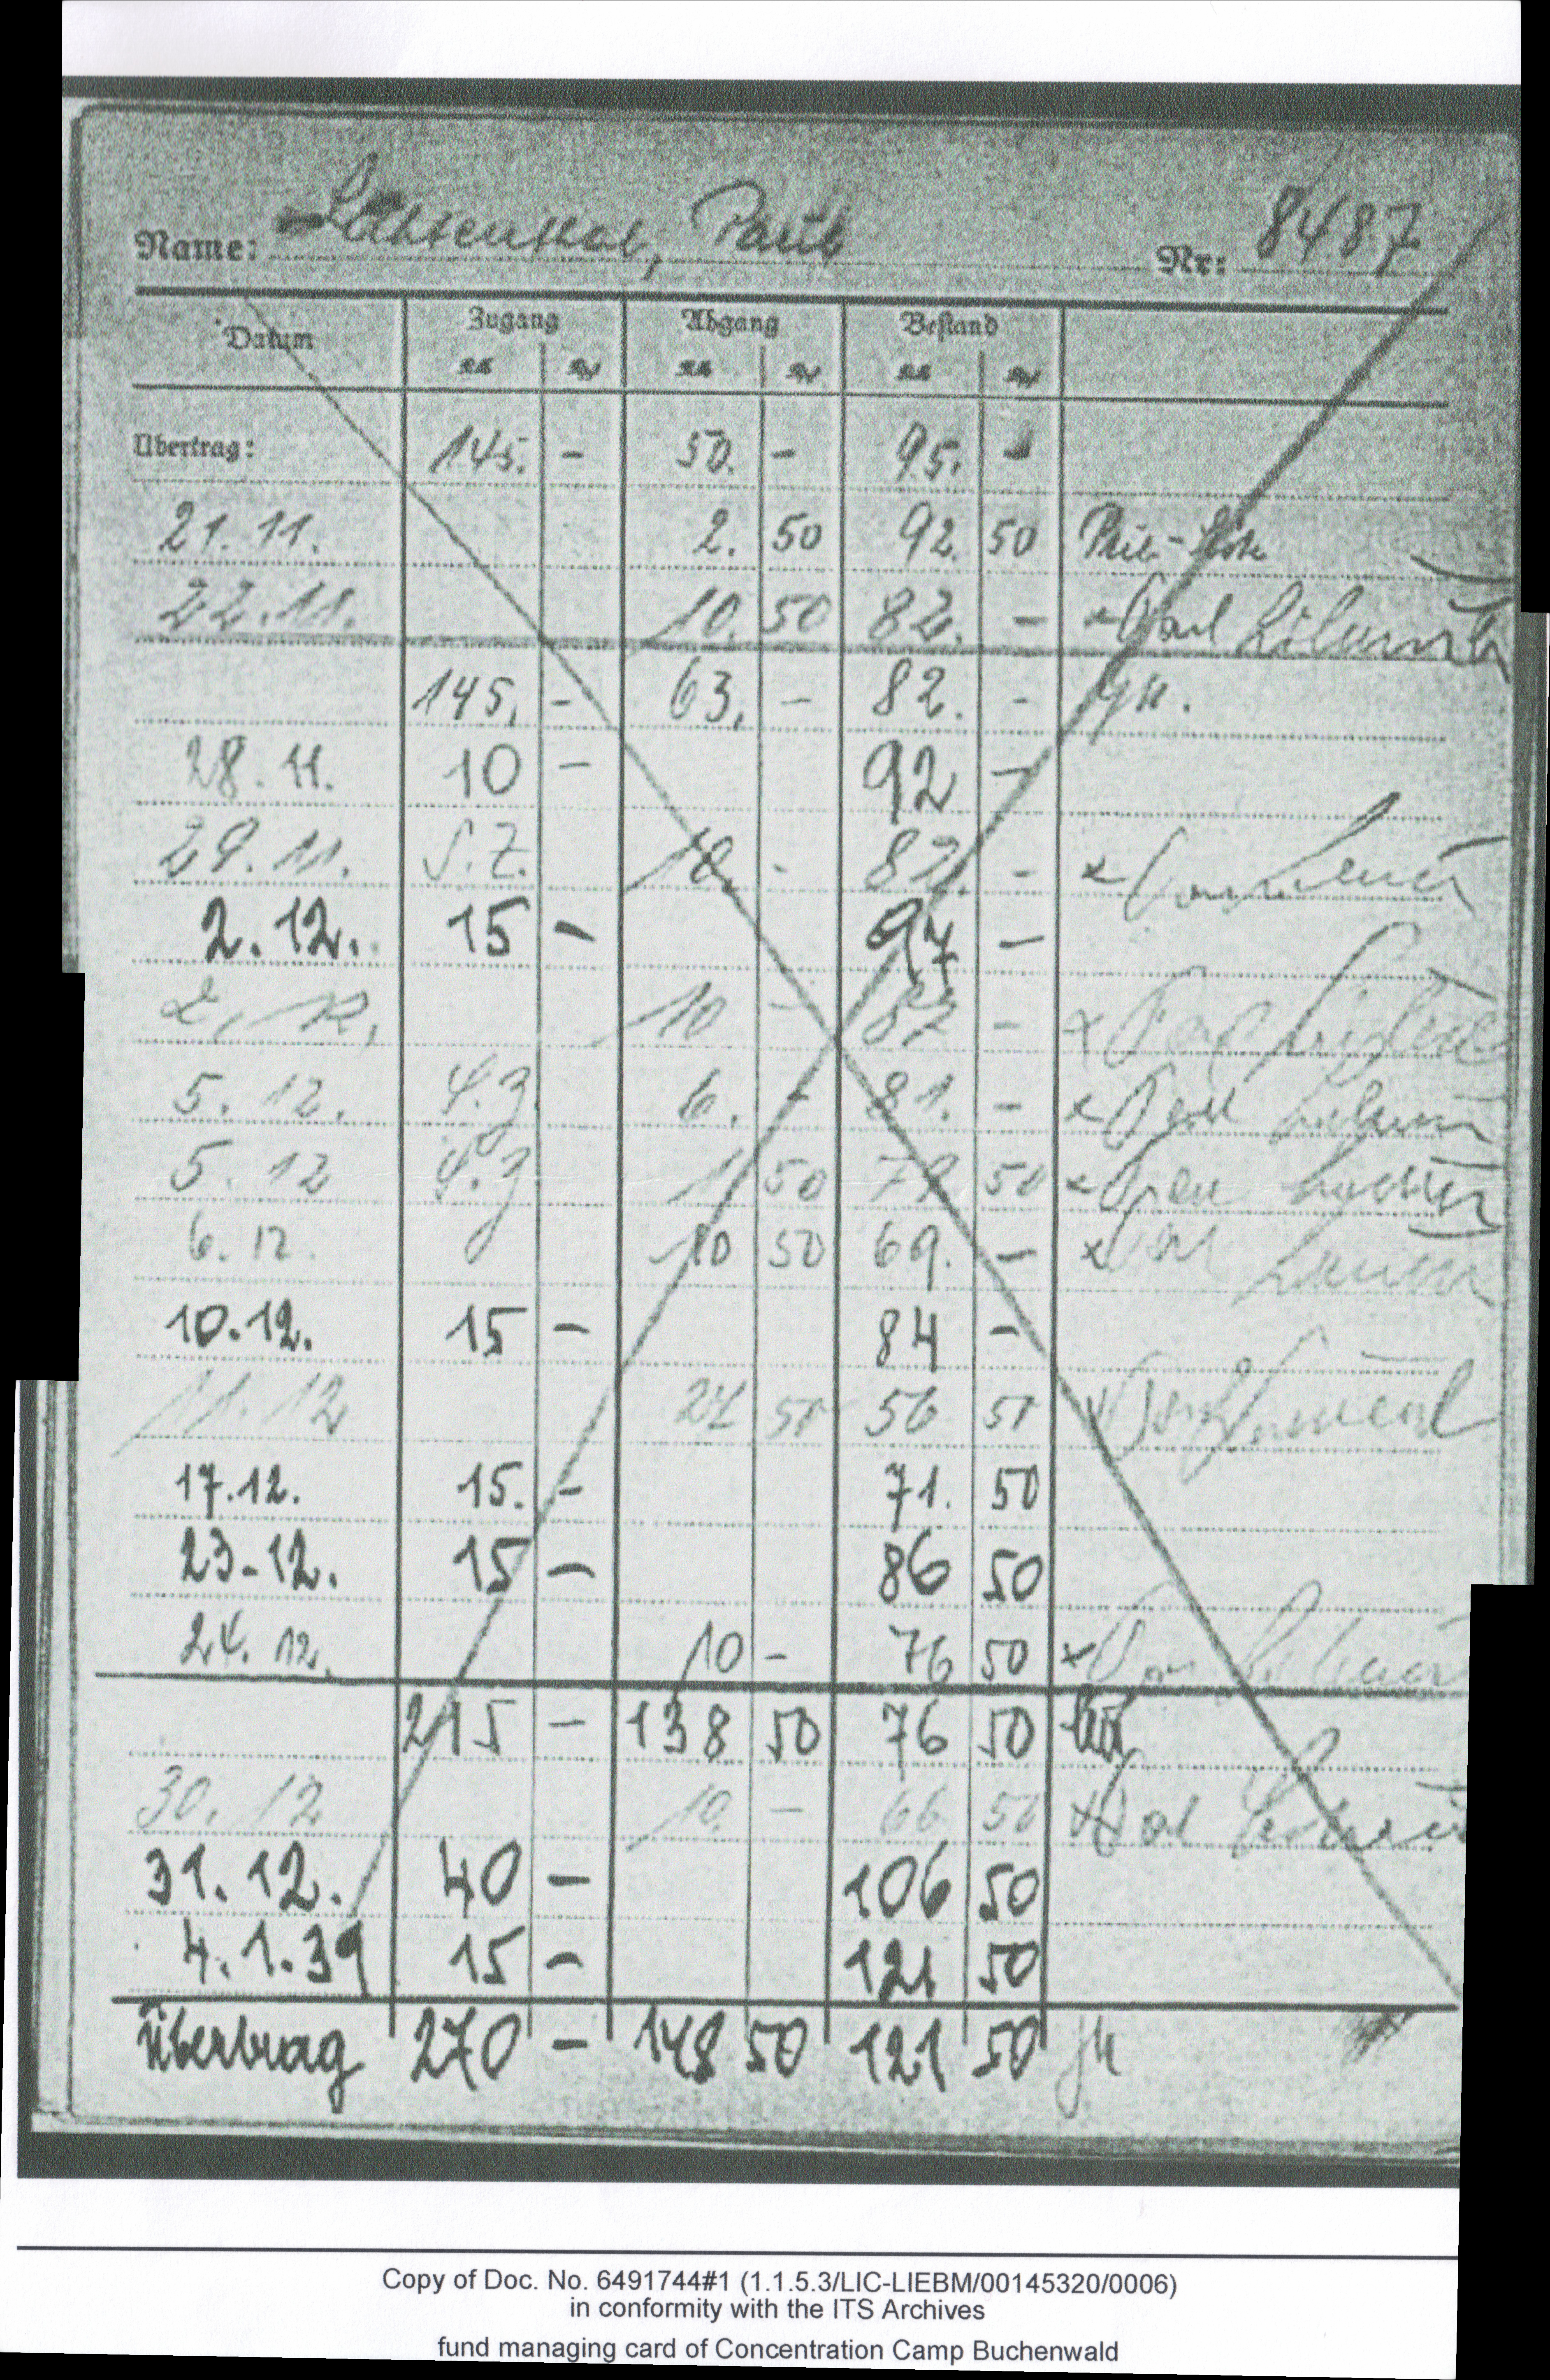 Name: Paul Nr: 8487
Datum Zugang Abgang Bestand
RM Rpf RM Rpf RM Rpf
Übertrag: 145. - 50. - 95. -
21.11. 2. 50 92. 50
22.11. 10. 50 82. -
145. - 63. - 82. -
28.11. 10 - 92 -
29.11. S.Z. 10. - 82. - x
2.12. 15 - 97 -
2.12. 10 - 87 - x
5.12. S.Z 6. - 81. - x
5.12 S.Z 1 50 79 50 x
6.12. 10 50 69. - x
10.12. 15 - 84 -
11.12 27 50 56 50
17.12. 15. - 71. 50
23-12. 15 - 86 50
24.12. 10 - 76 50 x
215 - 138 50 76 50
30.12 10. - 66 50 x
31.12. 40 - 106 50
4.1.39 15 - 121 50
Übertrag 270 - 148 50 121 50
Copy of Doc. No. 6491744#1 (1.1.5.3/LIC-LIEBM/00145320/0006)
in conformity with the ITS Archives
fund managing card of Concentration Camp Buchenwald